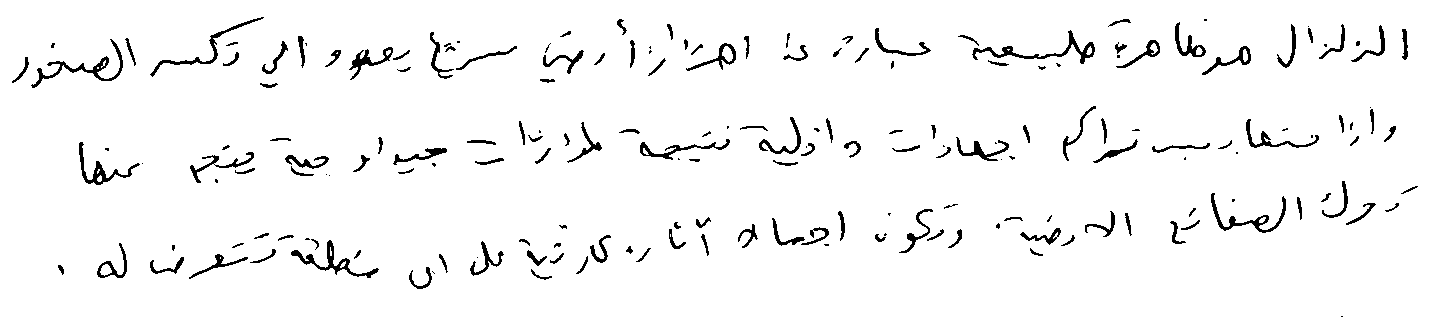 الزلزال هو ظاهرة طبيعية عبارة عن اهتزاز أرضي سريع يعود الى تكسر الصخور
وازاحتها بسبب تراكم اجهادات داخلية نتيجة لمؤثرات جيولوجية ينجم عنها
تحرك الصفائح الارضية. وتكون اجمالا آثاره كارثية على اى منطقة تتعرض له .